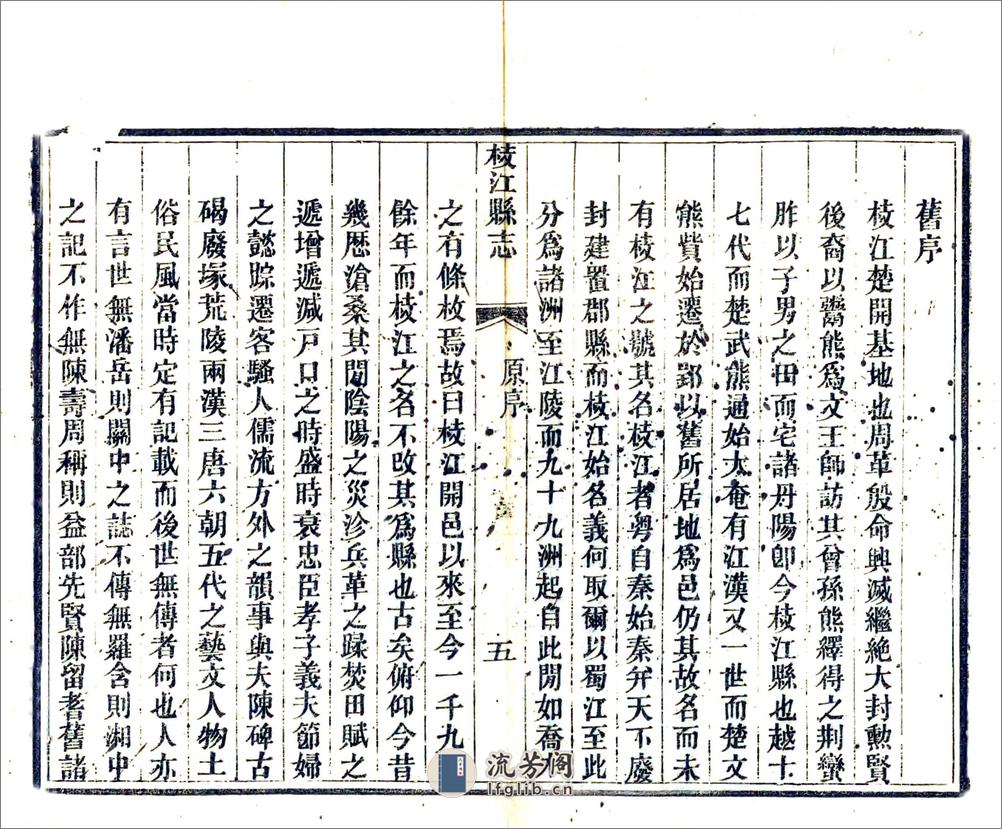 舊序
枝江楚開基地也周革殷命興滅繼絶大封勲賢
後裔以鬻熊爲文王師訪其曾孫熊繹得之荆蠻
胙以子男之田而宅諸丹陽卽今枝江縣也越十
七代而楚武熊通始大奄有江漢又一世而楚文
熊貲始遷於郢以舊所居地爲邑仍其故名而未
有枝江之號其名枝江者粤自秦始秦幷天下廢
封建置郡縣而枝江始名義何取爾以蜀江至此
分爲諸洲至江陵而九十九洲起自此閒如喬木
枝江縣志
原序
五
之有條枚焉故曰枝江開邑以來至今一千九百
餘年而枝江之名不改其爲縣也古矣俯仰今昔
幾歴滄桑其閒陰陽之災沴兵革之蹂焚田賦之
遞增遞減戸口之時盛時衰忠臣孝子義夫節婦
之懿踪遷客騷人儒流方外之韻事與夫陳碑古
碣廢塚荒陵兩漢三唐六朝五代之藝文人物土
俗民風當時定有記載而後世無傳者何也人亦
有言世無潘岳則關中之誌不傳無羅含則湘中
之記不作無陳壽周稱則益部先賢陳留耆舊諸
流芳阁
lfglib.cn